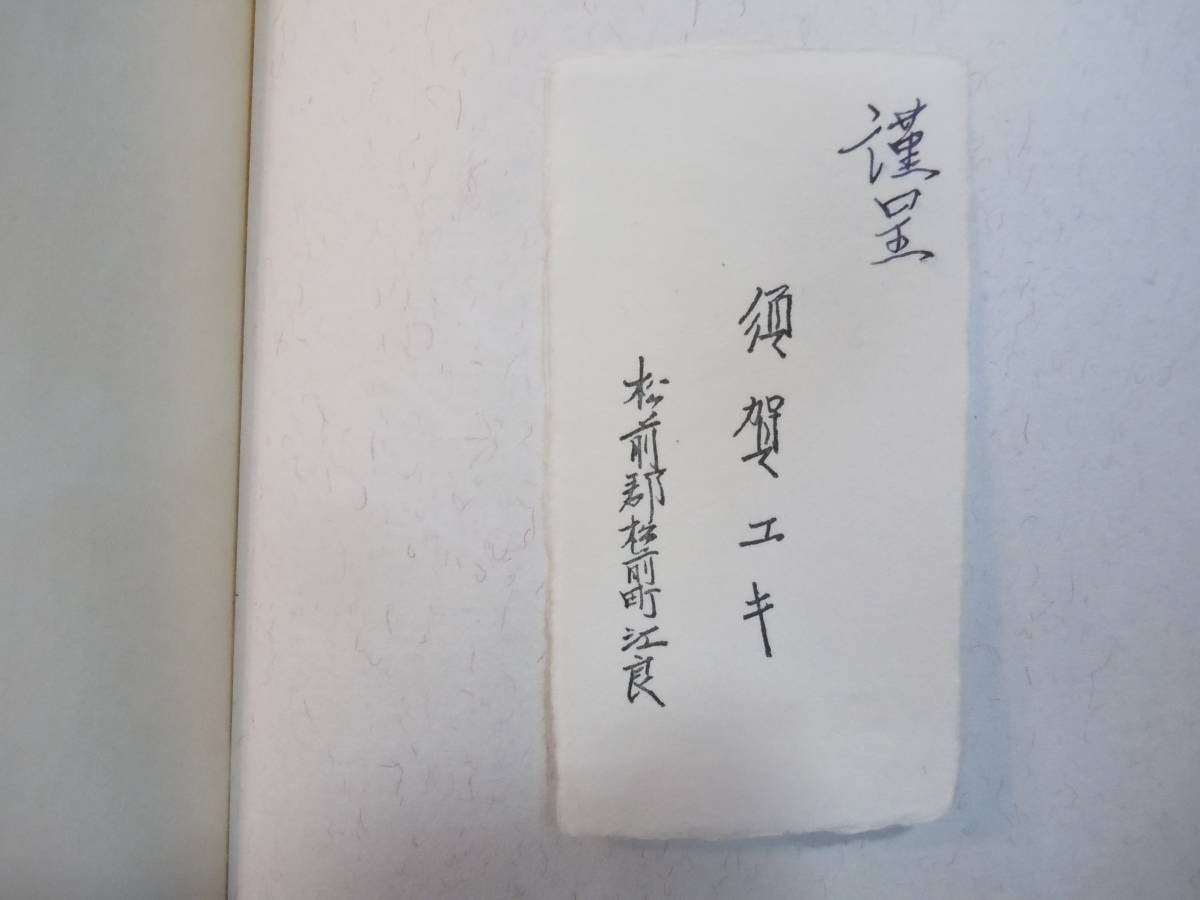 謹呈
須賀エキ
松前郡松前町江良